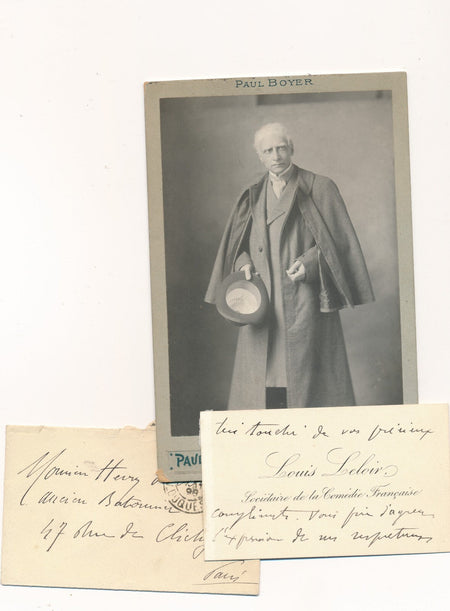 PAUL BOYER
PAUL
très touché de vos précieux
Louis Leloir
Sociétaire de la Comédie Française
compliments. Vous prie d'agréer
l'expression de ses
Monsieur Henry
Ancien Batonnier
47 Rue de Clichy
Paris